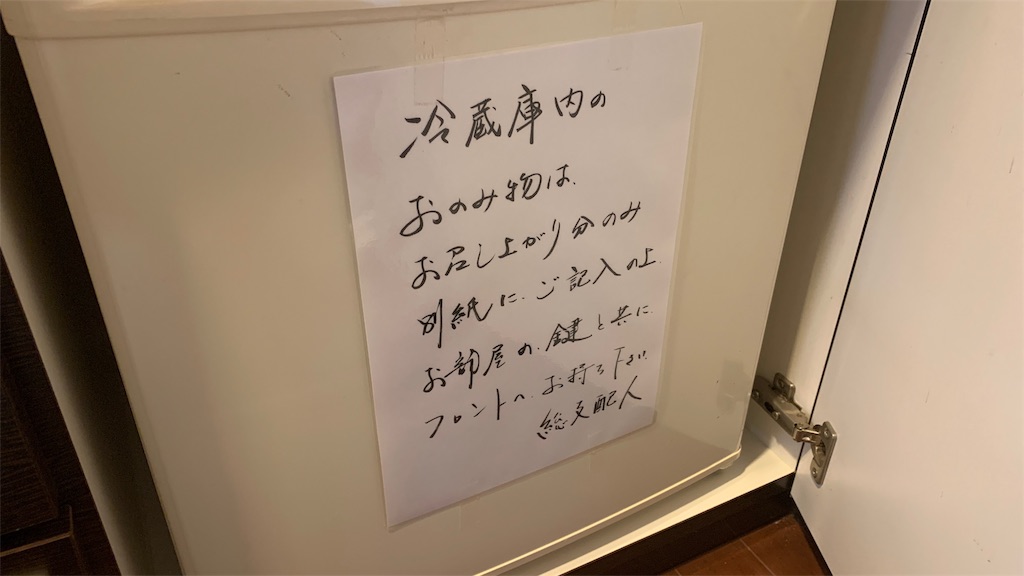 冷蔵庫内の
おのみ物は、
お召し上がり分のみ
別紙に、ご記入の上、
お部屋の、鍵と共に、
フロントへ、お持ち下さい、
総支配人